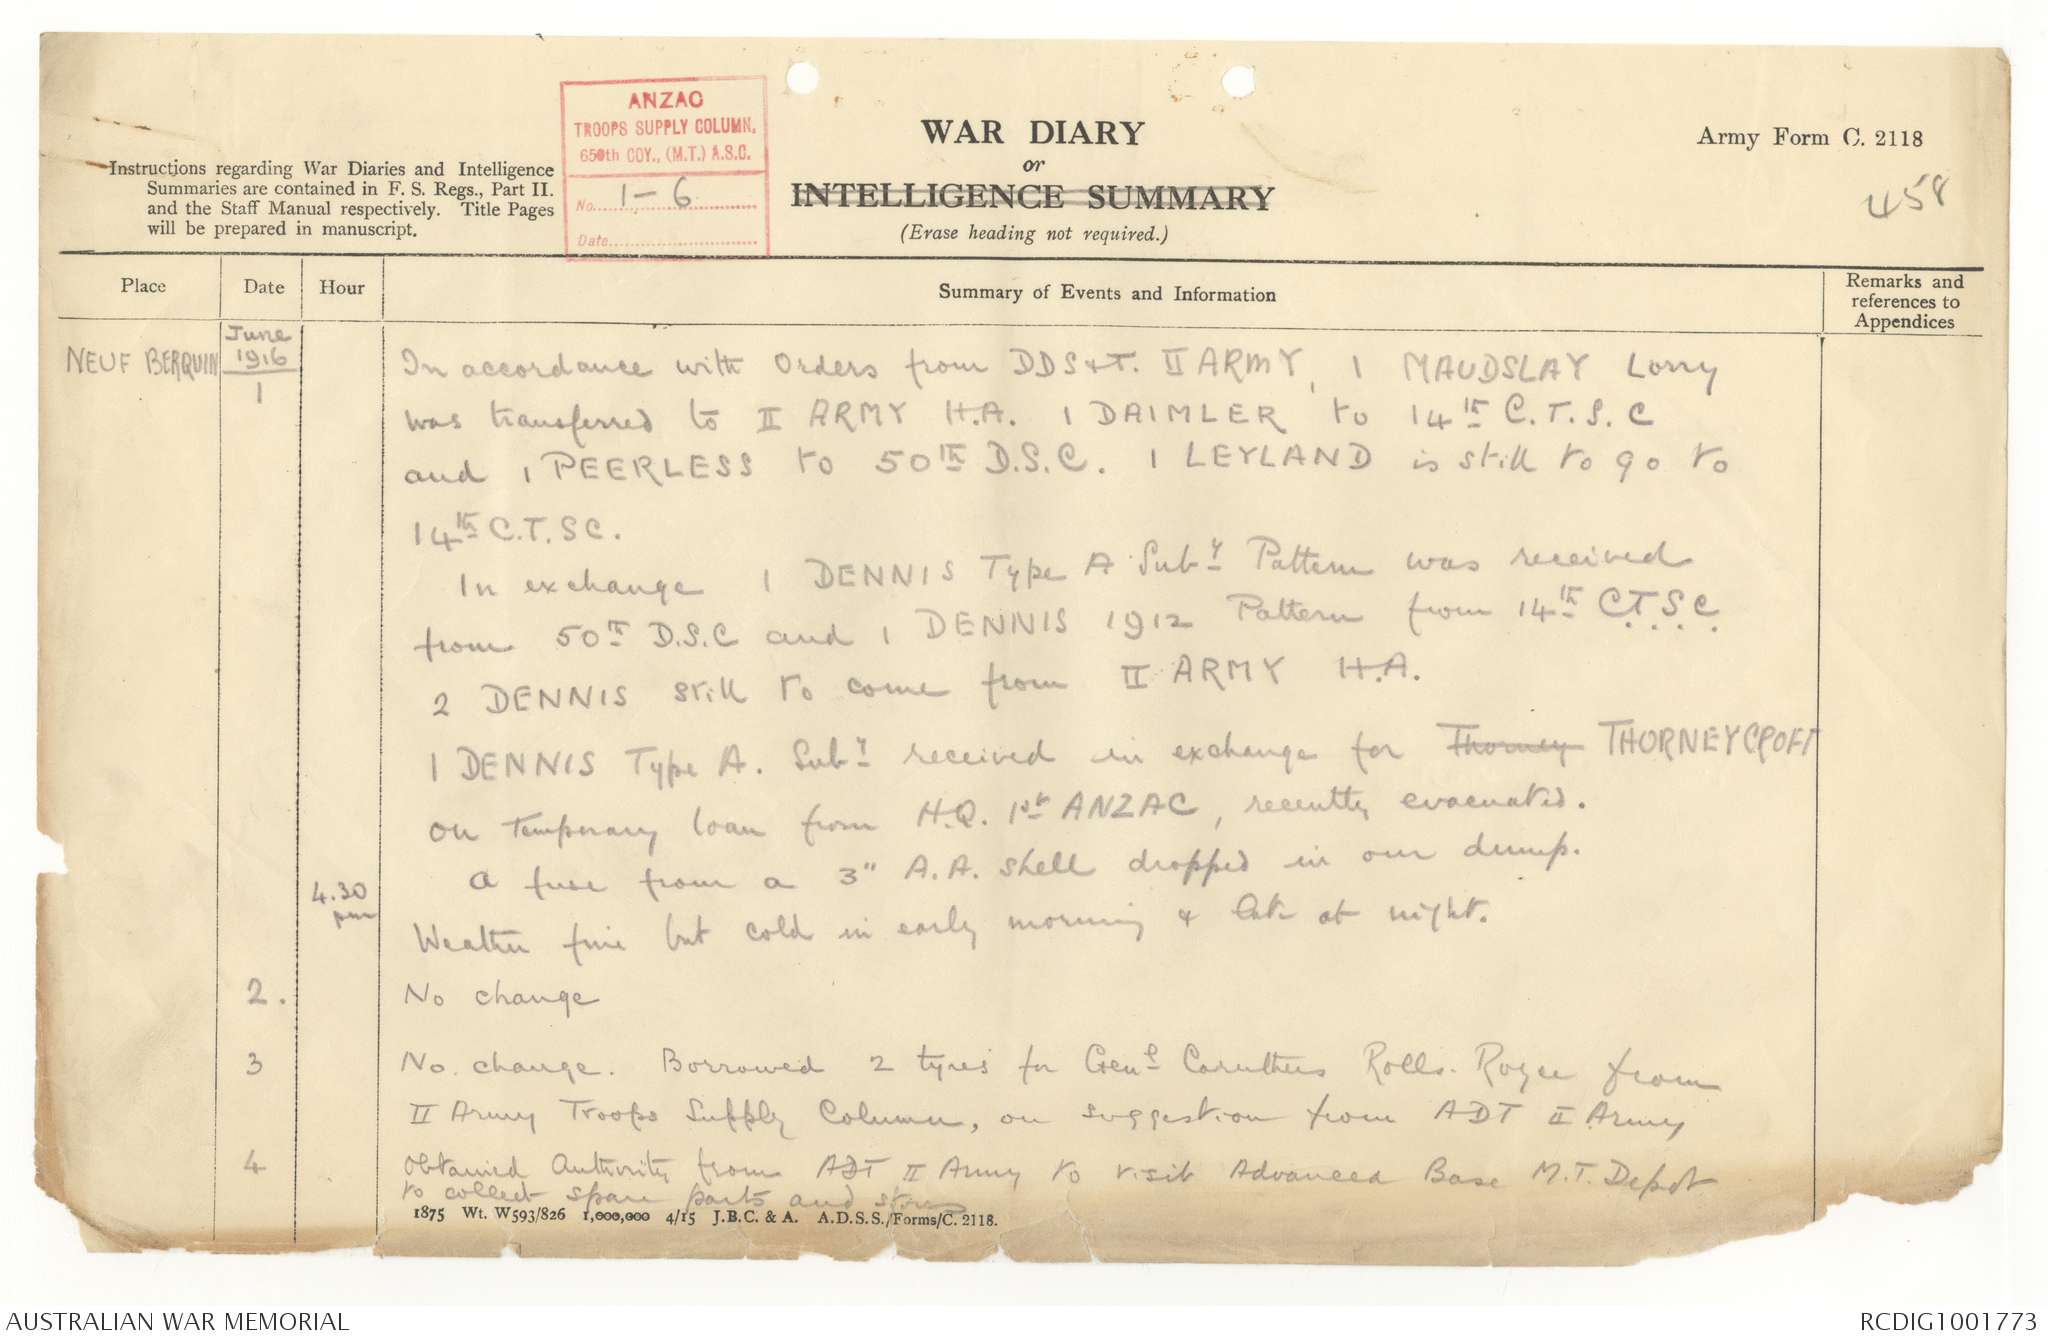 ANZAC
TROOPS SUPPLY COLUMN,
650th COY., (M.T.) A.S.C.
No. 1-6
Date
WAR DIARY
or
INTELLIGENCE SUMMARY
(Erase heading not required.)
Army Form C. 2118
458
Instructions regarding War Diaries and Intelligence
Summaries are contained in F. S. Regs., Part II.
and the Staff Manual respectively. Title Pages
will be prepared in manuscript.
Place Date Hour Summary of Events and Information Remarks and references to Appendices
NEUF BERQUIN June 1916
1 In accordance with Orders from DDS&T. II ARMY, 1 MAUDSLAY Lorry
was transferred to II ARMY H.A. 1 DAIMLER to 14th C.T.S.C
and 1 PEERLESS to 50th D.S.C. 1 LEYLAND is still to go to
14th C.T.SC.
In exchange 1 DENNIS Type A Suby Pattern was received
from 50th D.S.C and 1 DENNIS 1912 Pattern from 14th C.T.S.C.
2 DENNIS still to come from II ARMY H.A.
1 DENNIS Type A. Suby received in exchange for Thorney THORNEYCROFT
on temporary loan from H.Q. 1st ANZAC, recently evacuated.
4.30 pm A fuse from a 3" A.A. shell dropped in our dump.
Weather fine but cold in early morning & late at night.
2. No change
3 No change. Borrowed 2 tyres for Genl Caruthers Rolls-Royce from
II Army Troops Supply Column, on suggestion from ADT II Army
4 Obtained Authority from ADT II Army to visit Advanced Base M.T. Depot
to collect spare parts and stores
1875 Wt. W593/826 1,000,000 4/15 J.B.C. & A. A.D.S.S./Forms/C. 2118.
AUSTRALIAN WAR MEMORIAL
RCDIG1001773